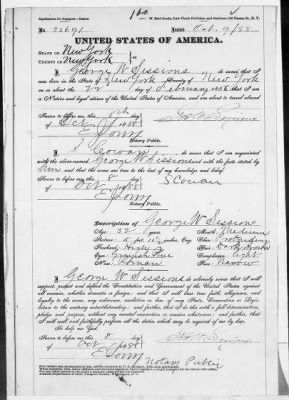 No. 22691 Issued Oct. 9/88
UNITED STATES OF AMERICA.
STATE OF New York
COUNTY OF New York
I, George W Sessions do swear that I was
born in the State of New York County of New York
on or about the 22 day of February 185 that I am
a Native and loyal citizen of the United States of America, and am about to travel abroad
Sworn to before me, this 8th
day of Oct 1888
Notary Public.
I Cowan do swear that I am acquainted
with the above-named George W Sessions and with the facts stated by
him and that the same are true to the best of my knowledge and belief.
Sworn to before me, this 8
day of Oct 1888
S Cowan
Notary Public.
Description of George W Sessions
Age: 32 years. Mouth: Medium
Stature: 5 feet inches, Eng. Chin:
Forehead: High Hair: Dark
Eyes: Complexion: Light
Nose: Roman Face: Narrow
I, George W Sessions do solemnly swear that I will
support, protect and defend the Constitution and Government of the United States against
all enemies, whether domestic or foreign; and that I will bear true faith, allegiance, and
loyalty to the same, any ordinance, resolution or law of any State, Convention or Legis-
lature to the contrary notwithstanding; and further, that I do this with a full determination,
pledge and purpose, without any mental reservation or evasion whatsoever; and further, that
I will well and faithfully perform all the duties which may be required of me by law.
So help me God.
Sworn to before me, this 8
day of Oct 1888
Notary Public